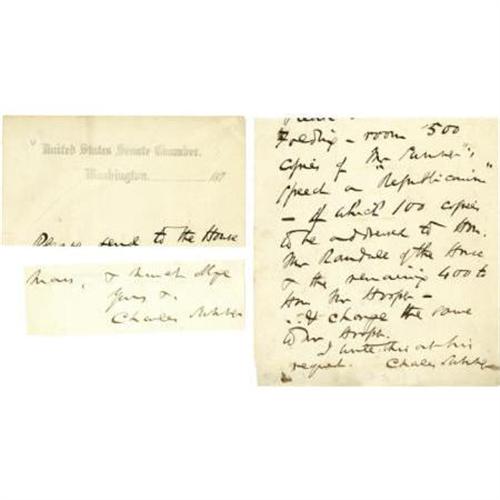 United States Senate Chamber.
Washington. 187
Please send to the House
& much oblige
Yours &.
Charles Sumner
Folding-room 500
copies of Mr Sumner's
Speech on "Republicanism"
- of which 100 copies
to be addressed to Hon.
Mr Randall of the House
& the remaining 400 to
Hon Mr Hooper -
& charge the same
to Mr Hooper.
I write this at his
request. Charles Sumner